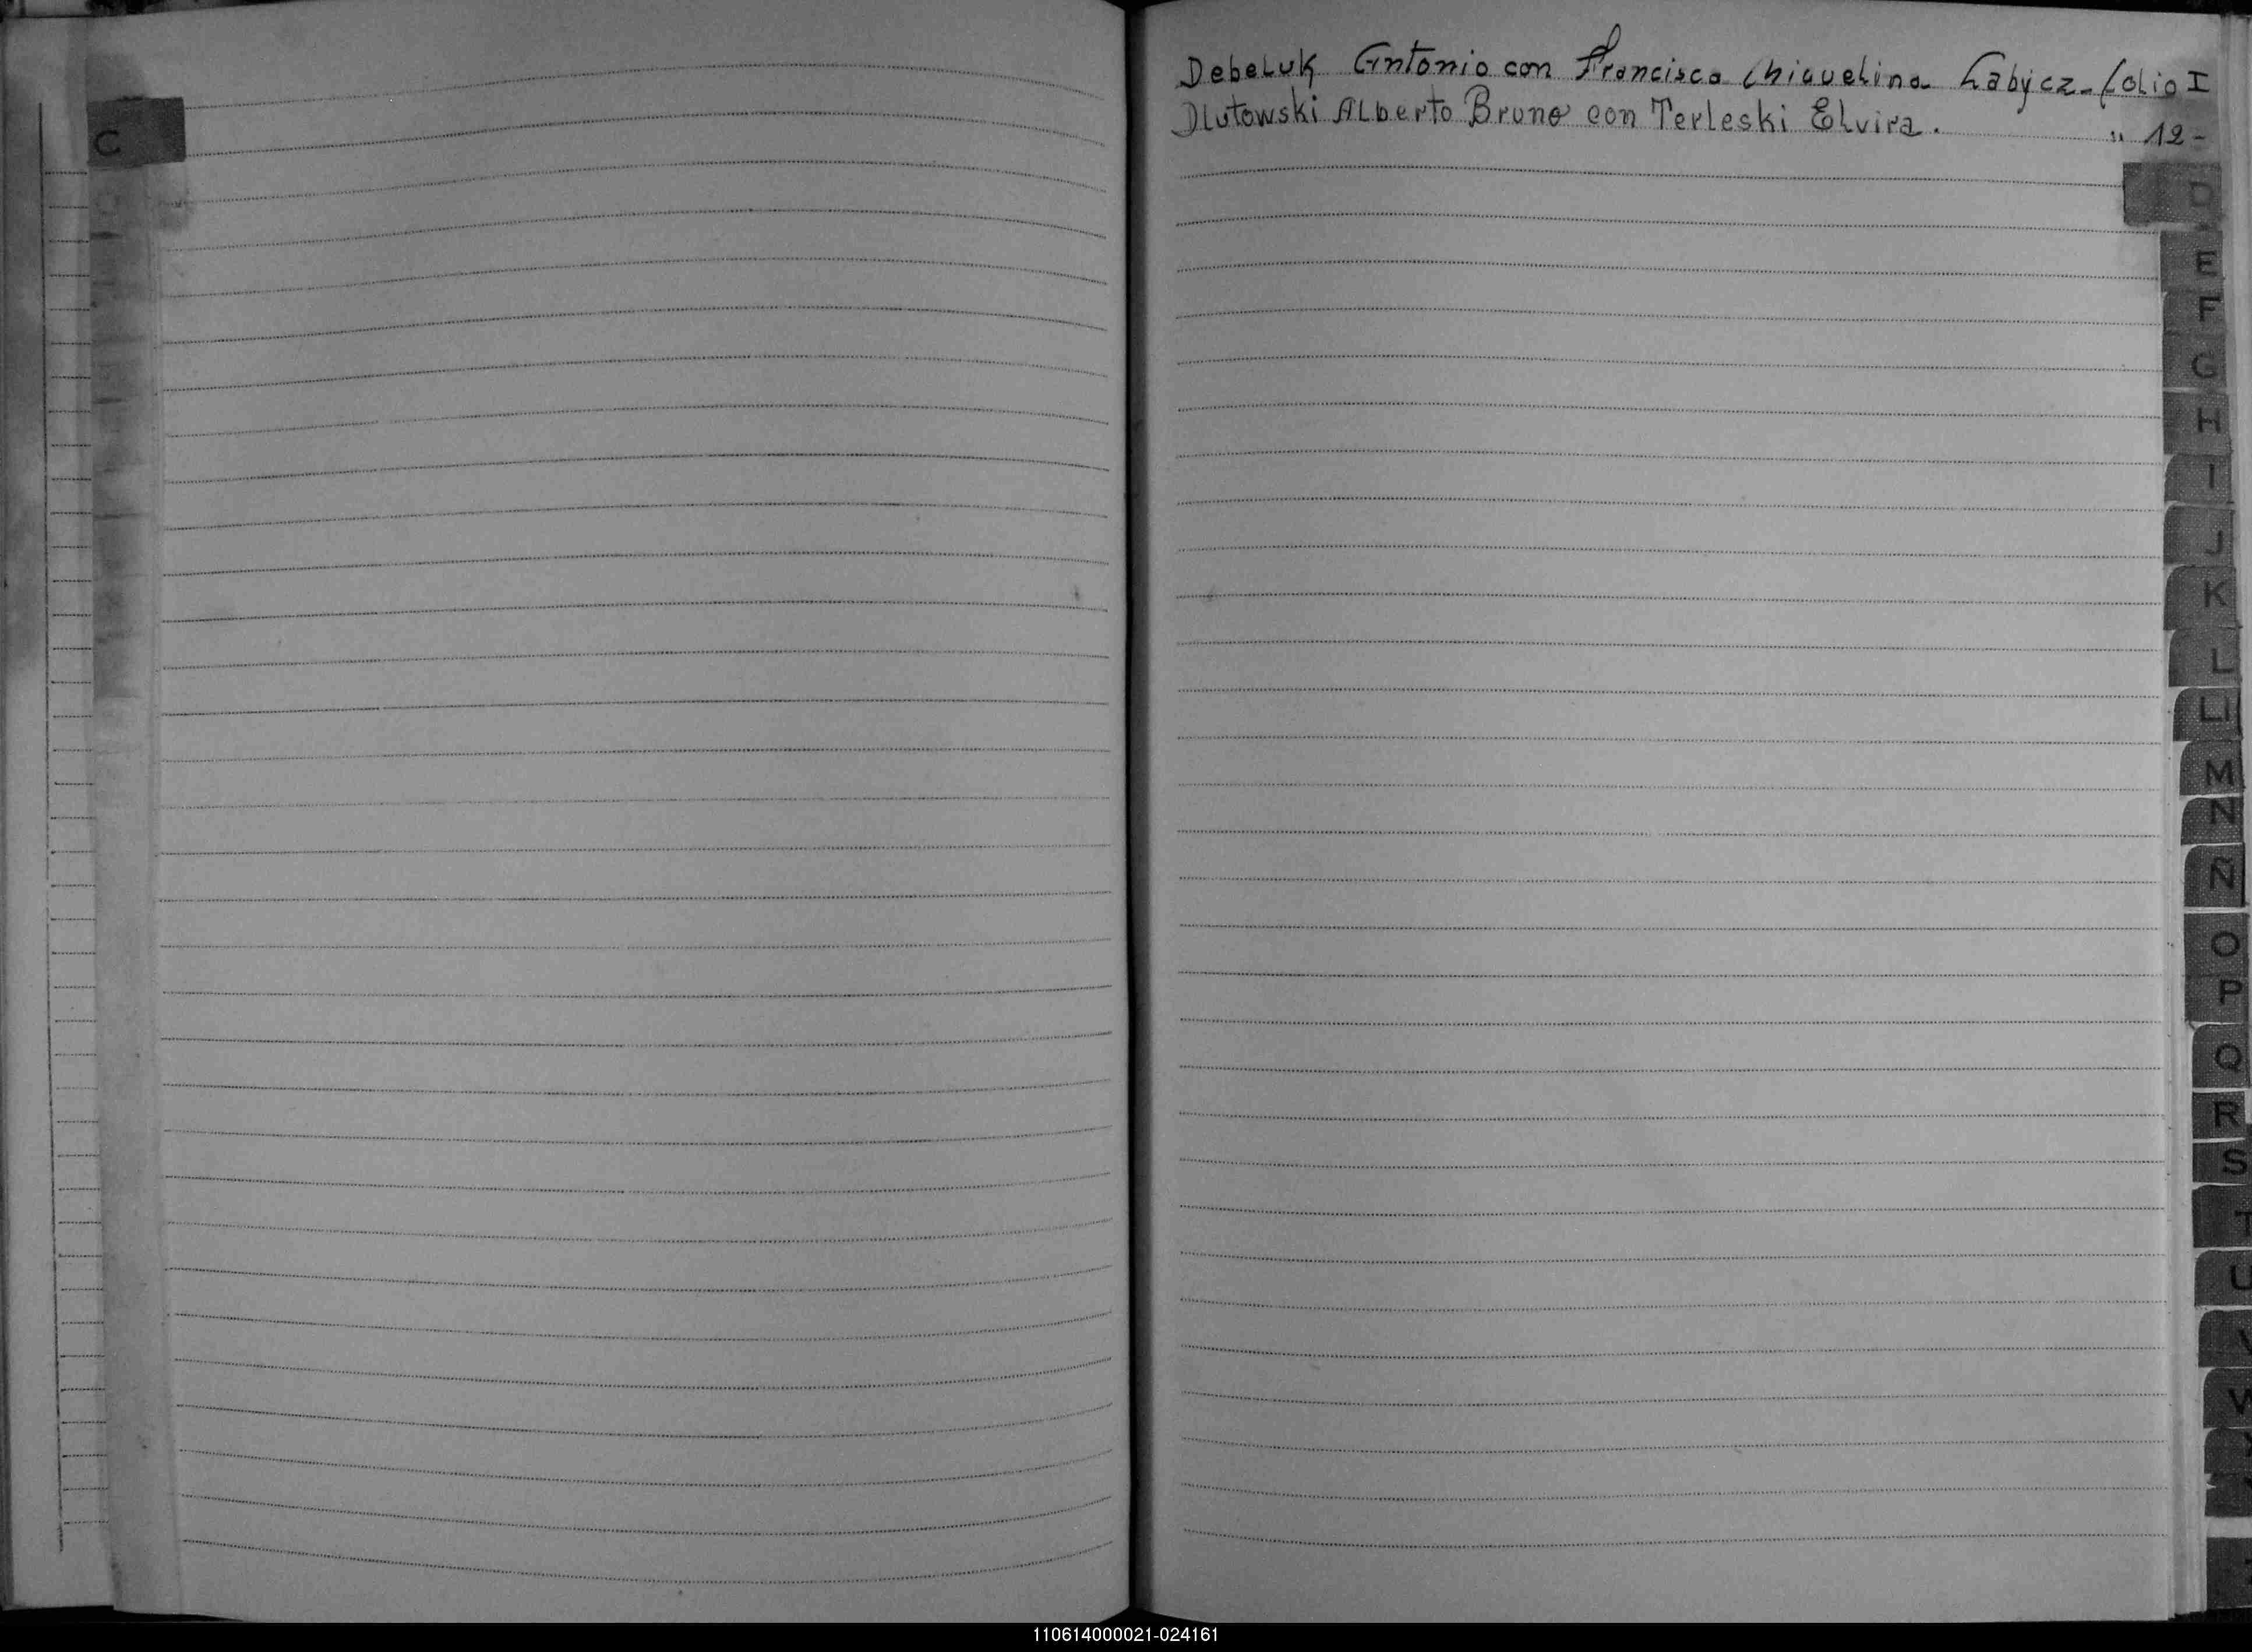 C
Debeluk Antonio con Francisca Chiquelina Labycz - folio I
Dlutowski Alberto Bruno con Terleski Elvira. " 12 -
D
E
F
G
H
I
J
K
L
Ll
M
N
Ñ
O
P
Q
R
S
T
U
V
W
110614000021-024161